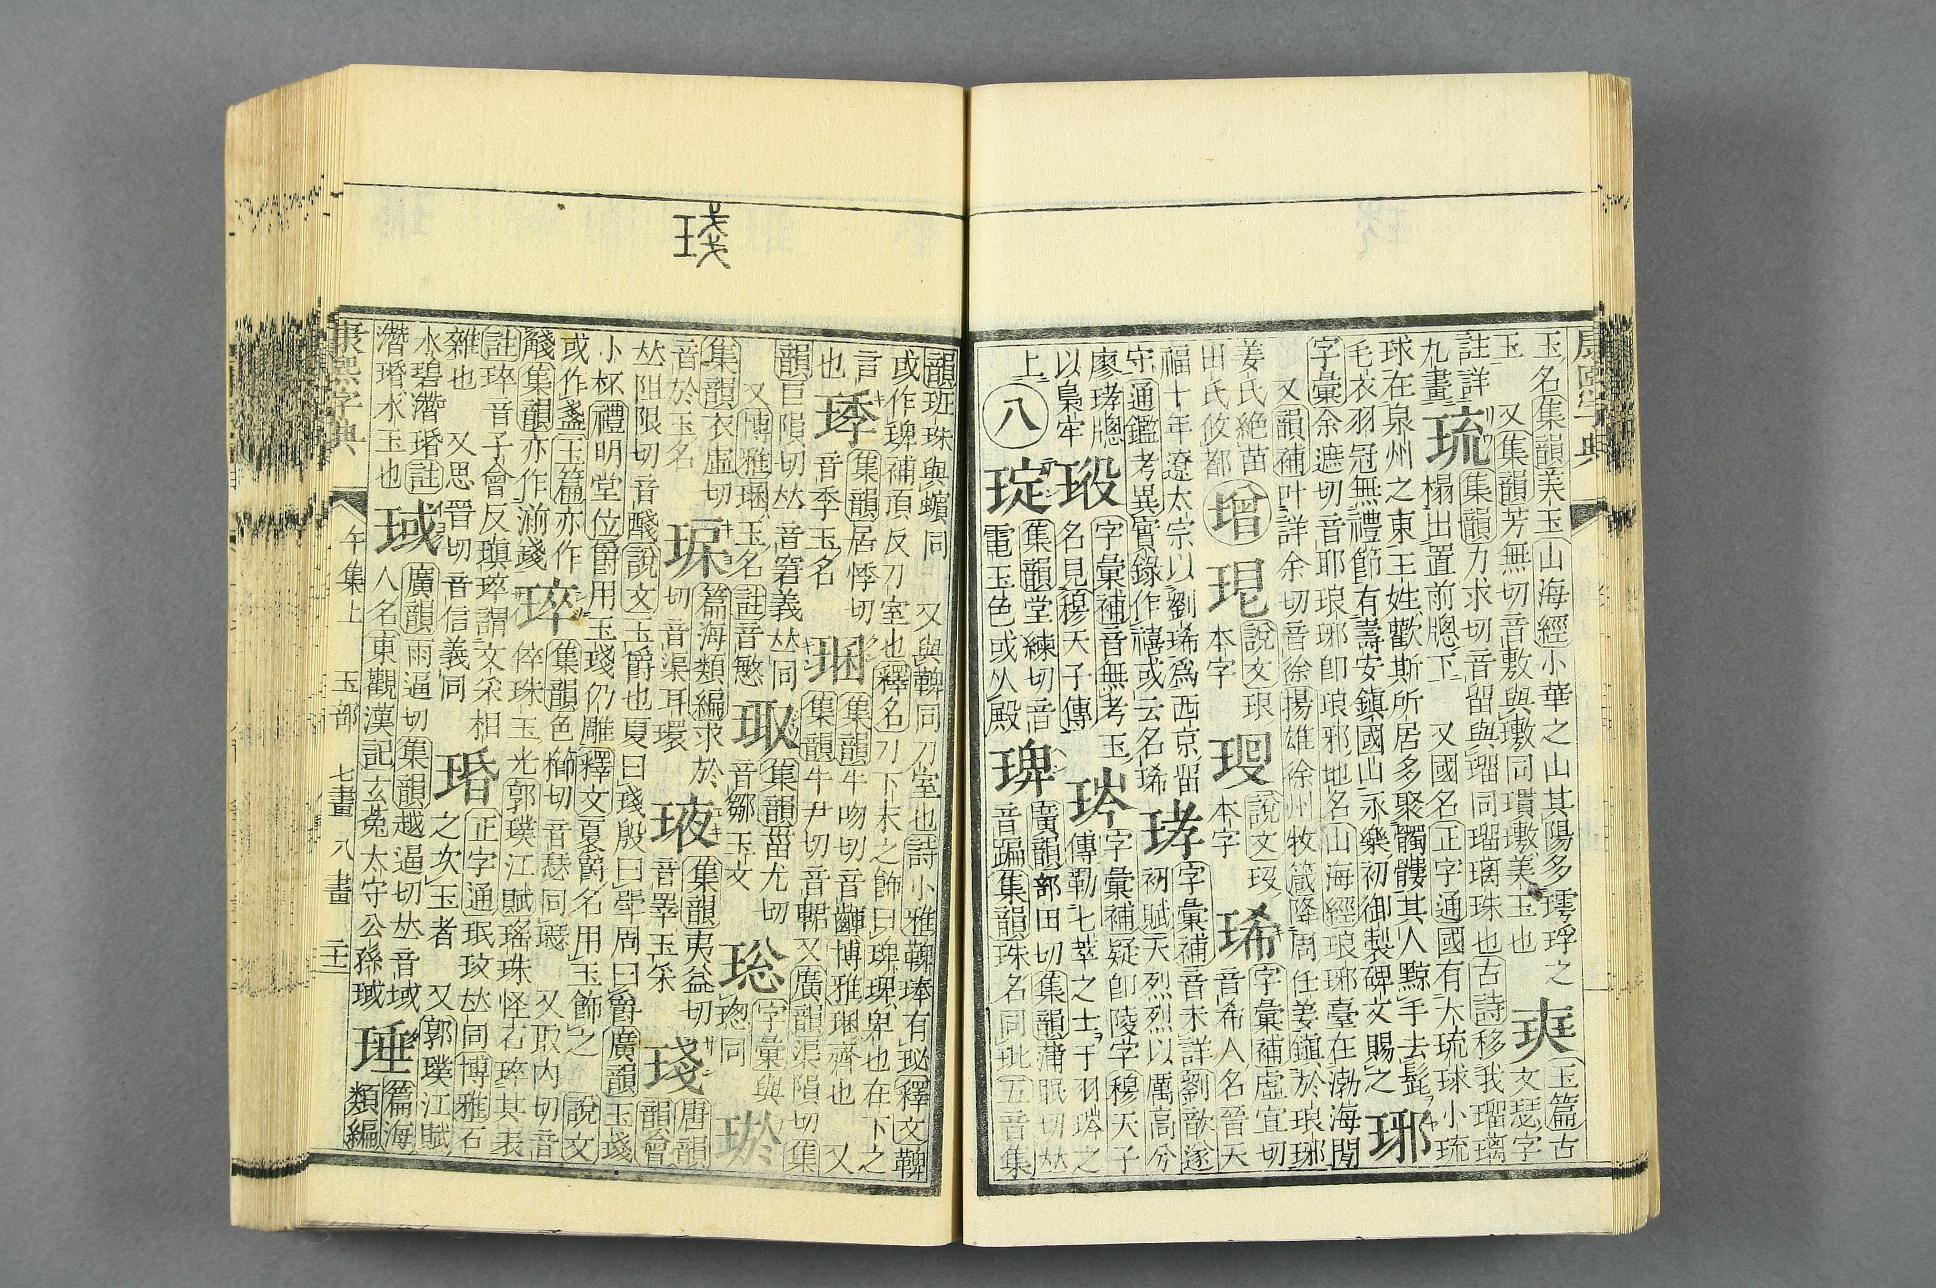 康熙字典
玉名集韻美玉山海經小華之山其陽多㻬琈之
玉　又集韻芳無切音敷與璷同璜璷美玉也
玉篇古
文瑟字
註詳
九畫
琉
集韻力求切音留與瑠同瑠璃珠也古詩移我瑠璃
榻出置前牕下　又國名正字通國有大琉球小琉
球在泉州之東王姓歡斯所居多聚髑髏其人黥手去髭
毛衣羽冠無禮節有壽安鎭國山永樂初御製碑文賜之
琊
字彙余遮切音耶琅琊卽琅邪地名山海經琅琊臺在渤海閒
又韻補叶詳余切音徐揚雄徐州牧箴降周任姜鎮於琅琊
姜氏絶苗
田氏攸都
增
說文琅
本字
說文玟
本字
琋
字彙補虛宜切
音希人名晉天
福十年遼太宗以劉琋爲西京留
守通鑑考異實錄作禧或云名琋
字彙補音未詳劉歆遂
初賦天烈烈以厲高兮
廖㻋牕
以梟牢
字彙補音無考玉
名見穆天子傳
字彙補疑卽陵字穆天子
傳勒七萃之士于羽㻌之
上
八
琔
集韻堂練切音
電玉色或从殿
琕
廣韻部田切集韻蒲眠切𠀤
音蹁集韻珠名同玭五音集
琖
韻班珠與蠙同　又與鞞同刀室也詩小雅鞞琫有珌釋文鞞
或作琕補頂反刀室也釋名刀下末之飾曰琕琕卑也在下之
言
也
㻑
集韻居悸切
音季玉名
琚
集韻牛吻切音齳博雅琚齊也　又
集韻牛尹切音輑又廣韻渠隕切集
韻巨隕切𠀤音窘義𠀤同
又博雅琚玉名註音慜
集韻甾尤切
音鄒玉文
字彙與
璁同
琻
集韻衣虛切
音於玉名
篇海類編求於
切音渠耳環
㻉
集韻夷益切
音睪玉采
琖
唐韻
韻會
𠀤阻限切音醆說文玉爵也夏曰琖殷曰斝周曰爵廣韻玉琖
小杯禮明堂位爵用玉琖仍雕釋文夏爵名用玉飾之　說文
或作盞玉篇亦作
㔞集韻亦作湔琖
琗
集韻色櫛切音瑟同璱　又取內切音
倅珠玉光郭璞江賦瑤珠怪石琗其表
註琗音子會反瑱琗謂文采相
雜也　又思晉切音信義同
正字通珉玟𠀤同博雅石
之次玉者　又郭璞江賦
水碧潛㻉註
潛㻉水玉也
琙
廣韻雨逼切集韻越逼切𠀤音域
人名東觀漢記玄菟太守公孫琙
㻔
篇海
類編
康熙字典
午集上　玉部　七畫　八畫　二十一